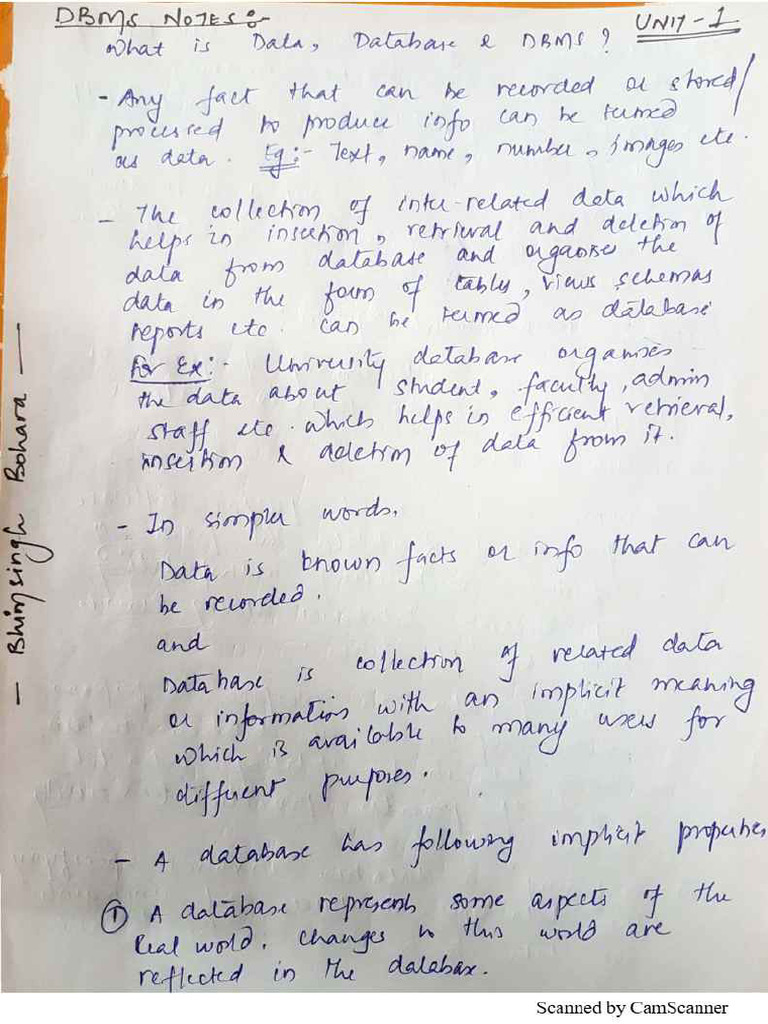 DBMS NOTES:-
UNIT-1
What is Data, Database & DBMS?
- Any fact that can be recorded or stored/
processed to produce info can be termed
as data. Eg:- Text, name, number, images etc.
- The collection of inter-related data which
helps in insertion, retrieval and deletion of
data from database and organises the
data in the form of tables, views schemas
reports etc. can be termed as database
For Ex:- University database organises
the data about student, faculty, admin
staff etc. which helps in efficient retrieval,
insertion & deletion of data from it.
- In simpler words.
Data is known facts or info that can
be recorded.
and
Database is collection of related data
or information with an implicit meaning
which is available to many users for
different purposes.
- A database has following implicit properties
① A database represents some aspects of the
Real world. Changes in this world are
reflected in the database.
- Bhimsingh Bohara -
Scanned by CamScanner